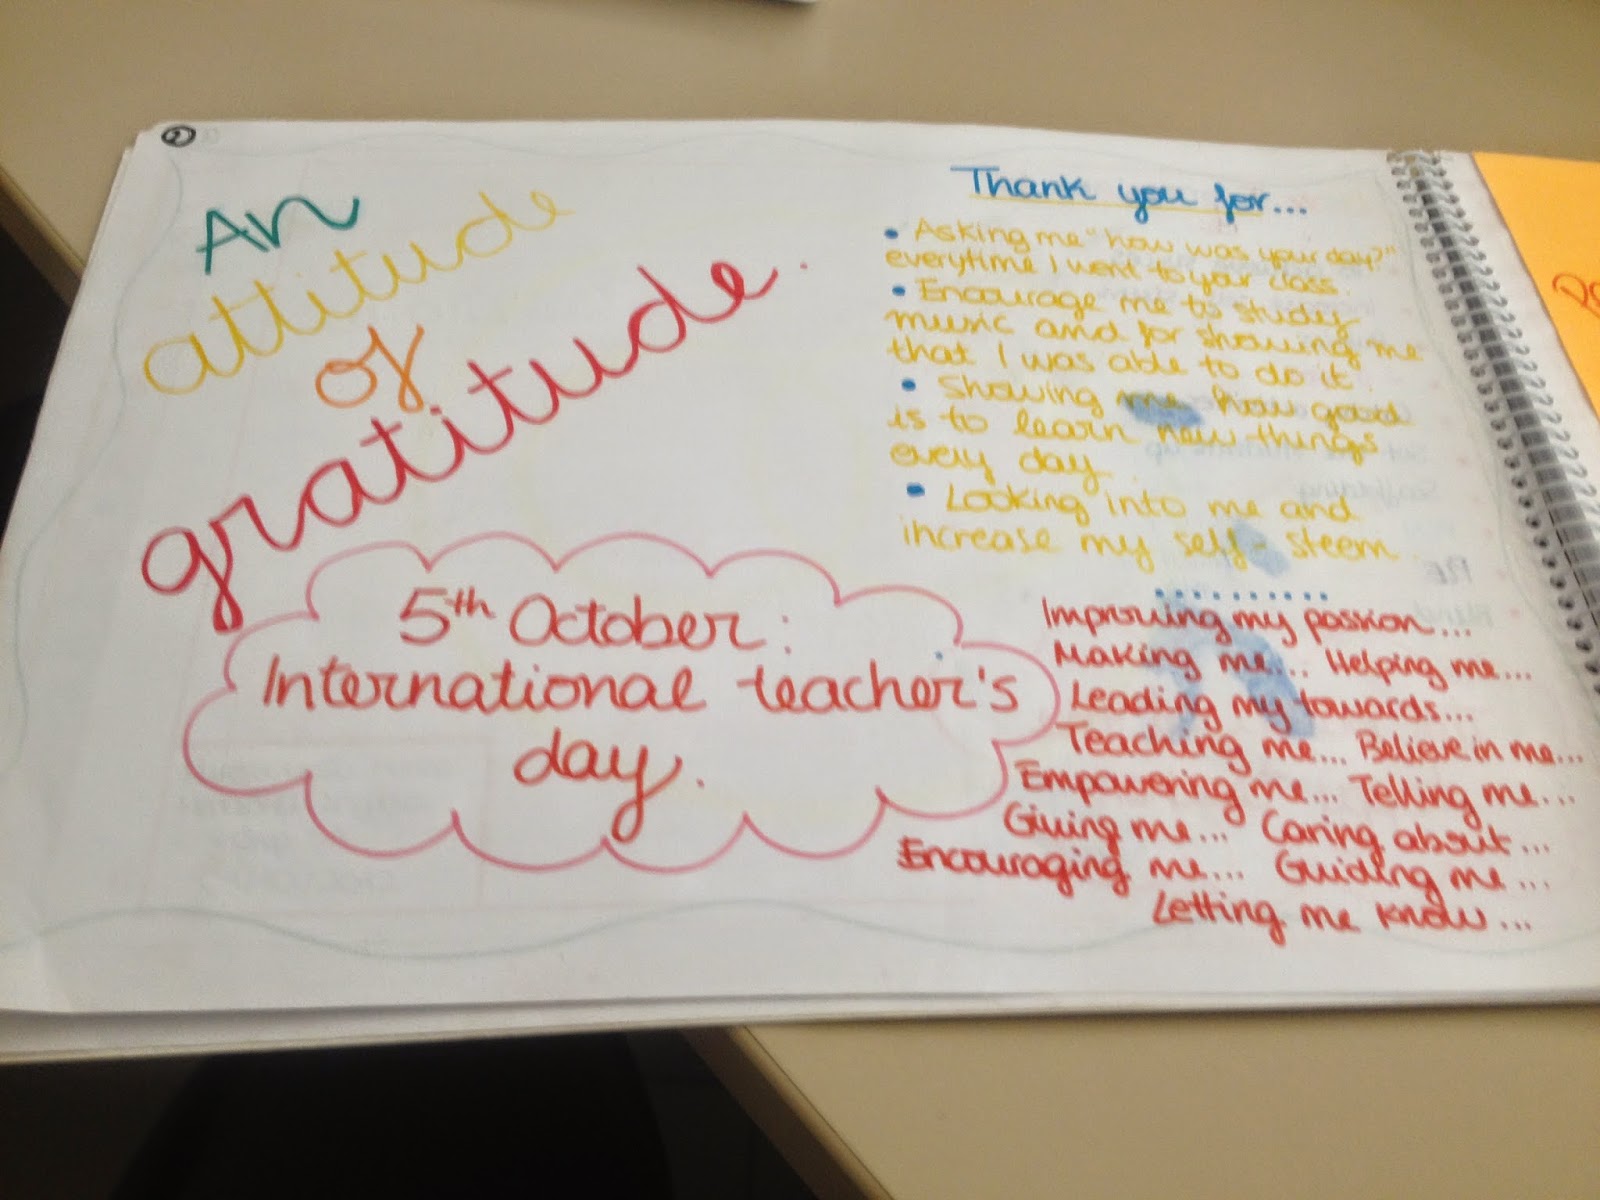 2
An
attitude
of
gratitude.
5th October:
International teacher's
day.
Thank you for...
• Asking me "how was your day?"
everytime I went to your class.
• Encourage me to study
music and for showing me
that I was able to do it.
• Showing me how good
is to learn new things
every day.
• Looking into me and
increase my self-steem
..........
Improving my passion...
Making me... Helping me...
Leading my towards...
Teaching me... Believe in me...
Empowering me... Telling me...
Giving me... Caring about...
Encouraging me... Guiding me...
Letting me know...